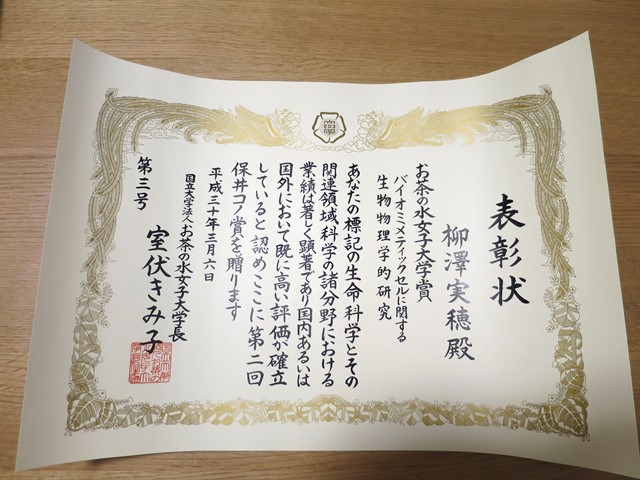 表彰状
柳澤実穂殿
お茶の水女子大学賞
バイオミメティックセルに関する
生物物理学的研究
あなたの標記の生命科学とその
関連領域科学の諸分野における
業績は著しく顕著であり国内あるいは
国外において既に高い評価が確立
していると認めここに第二回
保井コノ賞を贈ります
平成三十年三月六日
国立大学法人お茶の水女子大学長
室伏きみ子
第三号